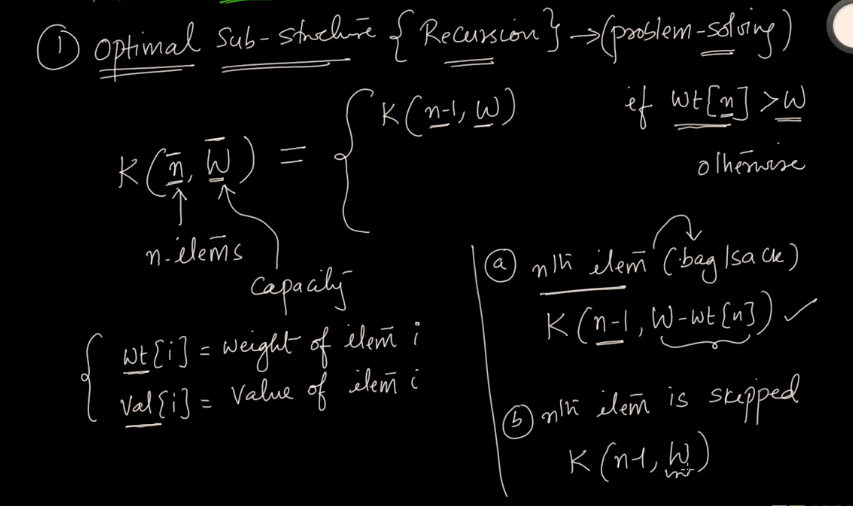 ① Optimal Sub-structure { Recursion } → (problem-solving)
K(n, W) = { K(n-1, W) if wt[n] > W
otherwise
n-items
capacity
{ wt[i] = weight of item i
val[i] = value of item i
ⓐ nth item (bag/sack)
K(n-1, W-wt[n]) ✓
ⓑ nth item is skipped
K(n-1, W)